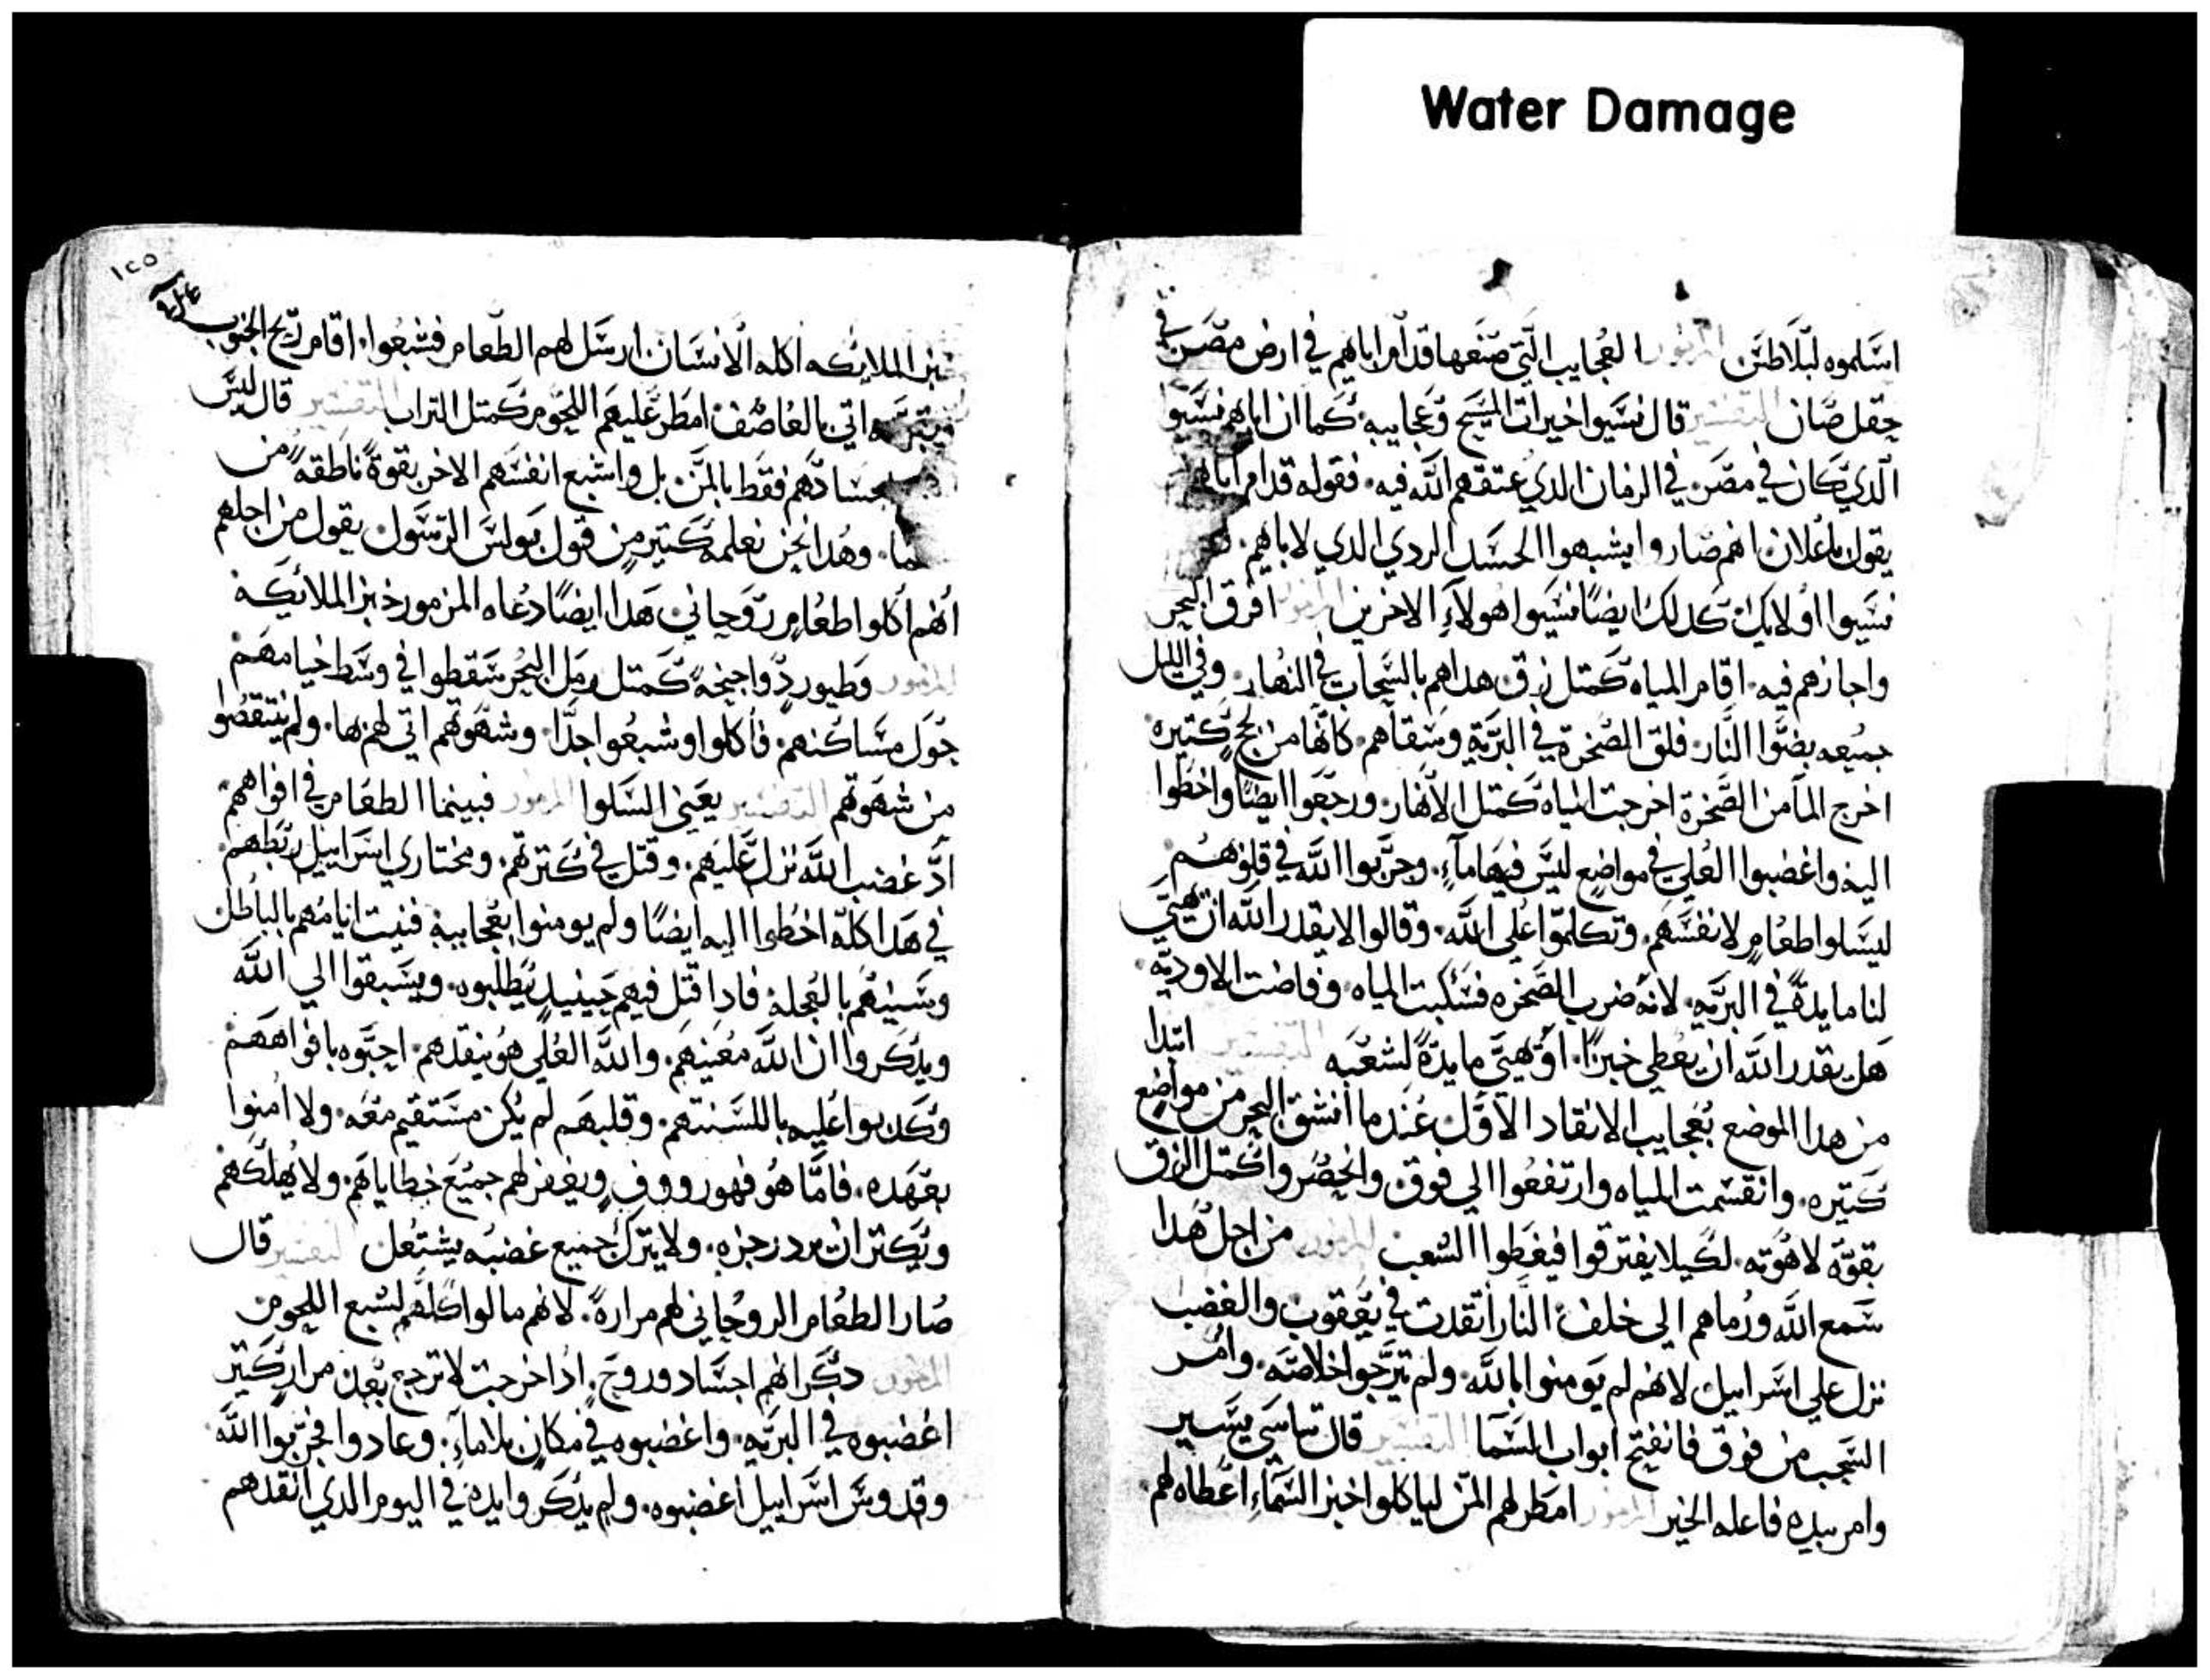 Water Damage
اسلموه لبلاطس المزمور العجايب التي صنعها قدام اباهم في ارض مصر في
حقل صان التفسير قال نسيوا خيرات المسيح وعجايبه كما ان اباهم نسيوا
الذي كان في مصر في الزمان الدي عتقهم الله فيه فقوله قدام اباهم
يقول باعلان انهم صاروا يشبهوا الحسد الردي الدي لاباهم
نسيوا اولايك كدلك ايضا نسيوا هولاء الاخرين المزمور افرق البحر
واجازهم فيه اقام المياه كمتل زق هداهم بالسحاب في النهار وفي الليل
جميعه بضوا النار فلق الصخرة في البرية وسقاهم كانها من لجج كتيره
اخرج الما من الصخرة اخرجت المياه كمتل الانهار ورجعوا ايضا واخطوا
اليه واغضبوا العلي في مواضع ليس فيها ماء وجربوا الله في قلوبهم
ليسلوا طعام لانفسهم وتكلموا علي الله وقالوا لا يقدر الله ان يهيي
لنا مايدة في البريه لانه ضرب الصخره فسكبت المياه وفاضت الاوديه
هل يقدر الله ان يعطي خبزا او يهيي مايدة لشعبه التفسير ابتدا
من هدا الموضع بعجايب الانقاد الاول عندما انشق البحر من مواضع
كتيره وانقسمت المياه وارتفعوا الي فوق وانحصروا كمتل الزق
بقوة لاهوته لكيلا يفترقوا فيغطوا الشعب المزمور من اجل هدا
سمع الله ورماهم الي خلف النار اتقدت في يعقوب والغضب
نزل علي اسراييل لانهم لم يومنوا بالله ولم يترجوا خلاصه وامر
السحب من فوق فانفتح ابواب السما التفسير قال تياسي يسير
وامر بيده فاعله الخير المزمور امطر لهم المن لياكلوا خبز السماء اعطاه لهم
١٢٥
خبز الملايكه اكله الانسان ارسل لهم الطعام فشبعوا اقام ريح الجنوب
اتي بالعاصف امطر عليهم اللحوم كمتل التراب التفسير قال ليس
اجسادهم فقط بالمن بل واشبع انفسهم الاخر بقوة ناطقه من
وهدا نحن نعلمه كتير من قول بولس الرسول يقول من اجلهم
انهم اكلوا طعام روحاني هدا ايضا دعاه المزمور خبز الملائكه
المزمور وطيور دو اجنحة كمتل رمل البحر سقطوا في وسط خيامهم
حول مساكنهم فاكلوا وشبعوا جدا وشهوتهم اتي لهم بها ولم ينتقصوا
من شهوتهم التفسير يعني السلوا المزمور فبينما الطعام في افواههم
اد غضب الله نزل عليهم وقتل في كترتهم ومختاري اسراييل ربطهم
في هدا كله اخطوا اليه ايضا ولم يومنوا بعجايبه فنيت ايامهم بالباطل
وسنينهم بالعجلة فادا قتل فيهم حينيد يطلبوه ويسبقوا الي الله
ويدكروا ان الله معينهم والله العلي هو ينقدهم احبوه بافواههم
وكدبوا عليه باللسنتهم وقلبهم لم يكن مستقيم معه ولا امنوا
بعهده فاما هو فهو رووف ويغفر لهم جميع خطاياهم ولا يهلكهم
ويكتر ان يرد رجزه ولا يترك جميع غضبه يشتعل التفسير قال
صار الطعام الروحاني لهم مرارة لانهم مالوا كلهم لشبع اللحوم
المزمور دكر انهم اجساد وروح ادا خرجت لا ترجع بعد مرار كتير
اغضبوه في البريه واغضبوه في مكان بلا ماء وعادوا فجربوا الله
وقدوس اسراييل اغضبوه ولم يدكروا يده في اليوم الدي انقدهم